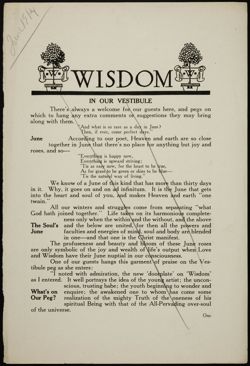 June 1914
WISDOM
IN OUR VESTIBULE
There's always a welcome for our guests here, and pegs on
which to hang any extra comments or suggestions they may bring
along with them.
"And what is so rare as a day in June?
Then, if ever, come perfect days."
June According to our poet, Heaven and earth are so close
together in June that there's no place for anything but joy and
roses, and so—
"Everything is happy now,
Everything is upward striving;
'Tis as easy now, for the heart to be true,
As for grass to be green or skies to be blue—
'Tis the natural way of living."
We know of a June of this kind that has more than thirty days
in it. Why, it goes on and on ad infinitum. It is the June that gets
into the heart and soul of you, and makes Heaven and earth "one
twain."
All our winters and struggles come from separating "what
God hath joined together." Life takes on its harmonious complete-
ness only when the within and the without, and the above
The Soul's and the below are united, for then all the powers and
June faculties and energies of mind, soul and body are blended
in one—and that one is the Christ manifest.
The profuseness and beauty and bloom of these June roses
are only symbolic of the joy and wealth of life's output when Love
and Wisdom have their June nuptial in our consciousness.
One of our guests hangs this garment of praise on the Ves-
tibule peg as she enters:
"I noted with admiration, the new 'doorplate' on 'Wisdom'
as I entered. It well portrays the idea of the young artist; the uncon-
scious, trusting babe; the youth beginning to wonder and
What's on enquire; the awakened one to whom has come some
Our Peg? realization of the mighty Truth of the oneness of his
spiritual Being with that of the All-Pervading over-soul
of the universe.
One